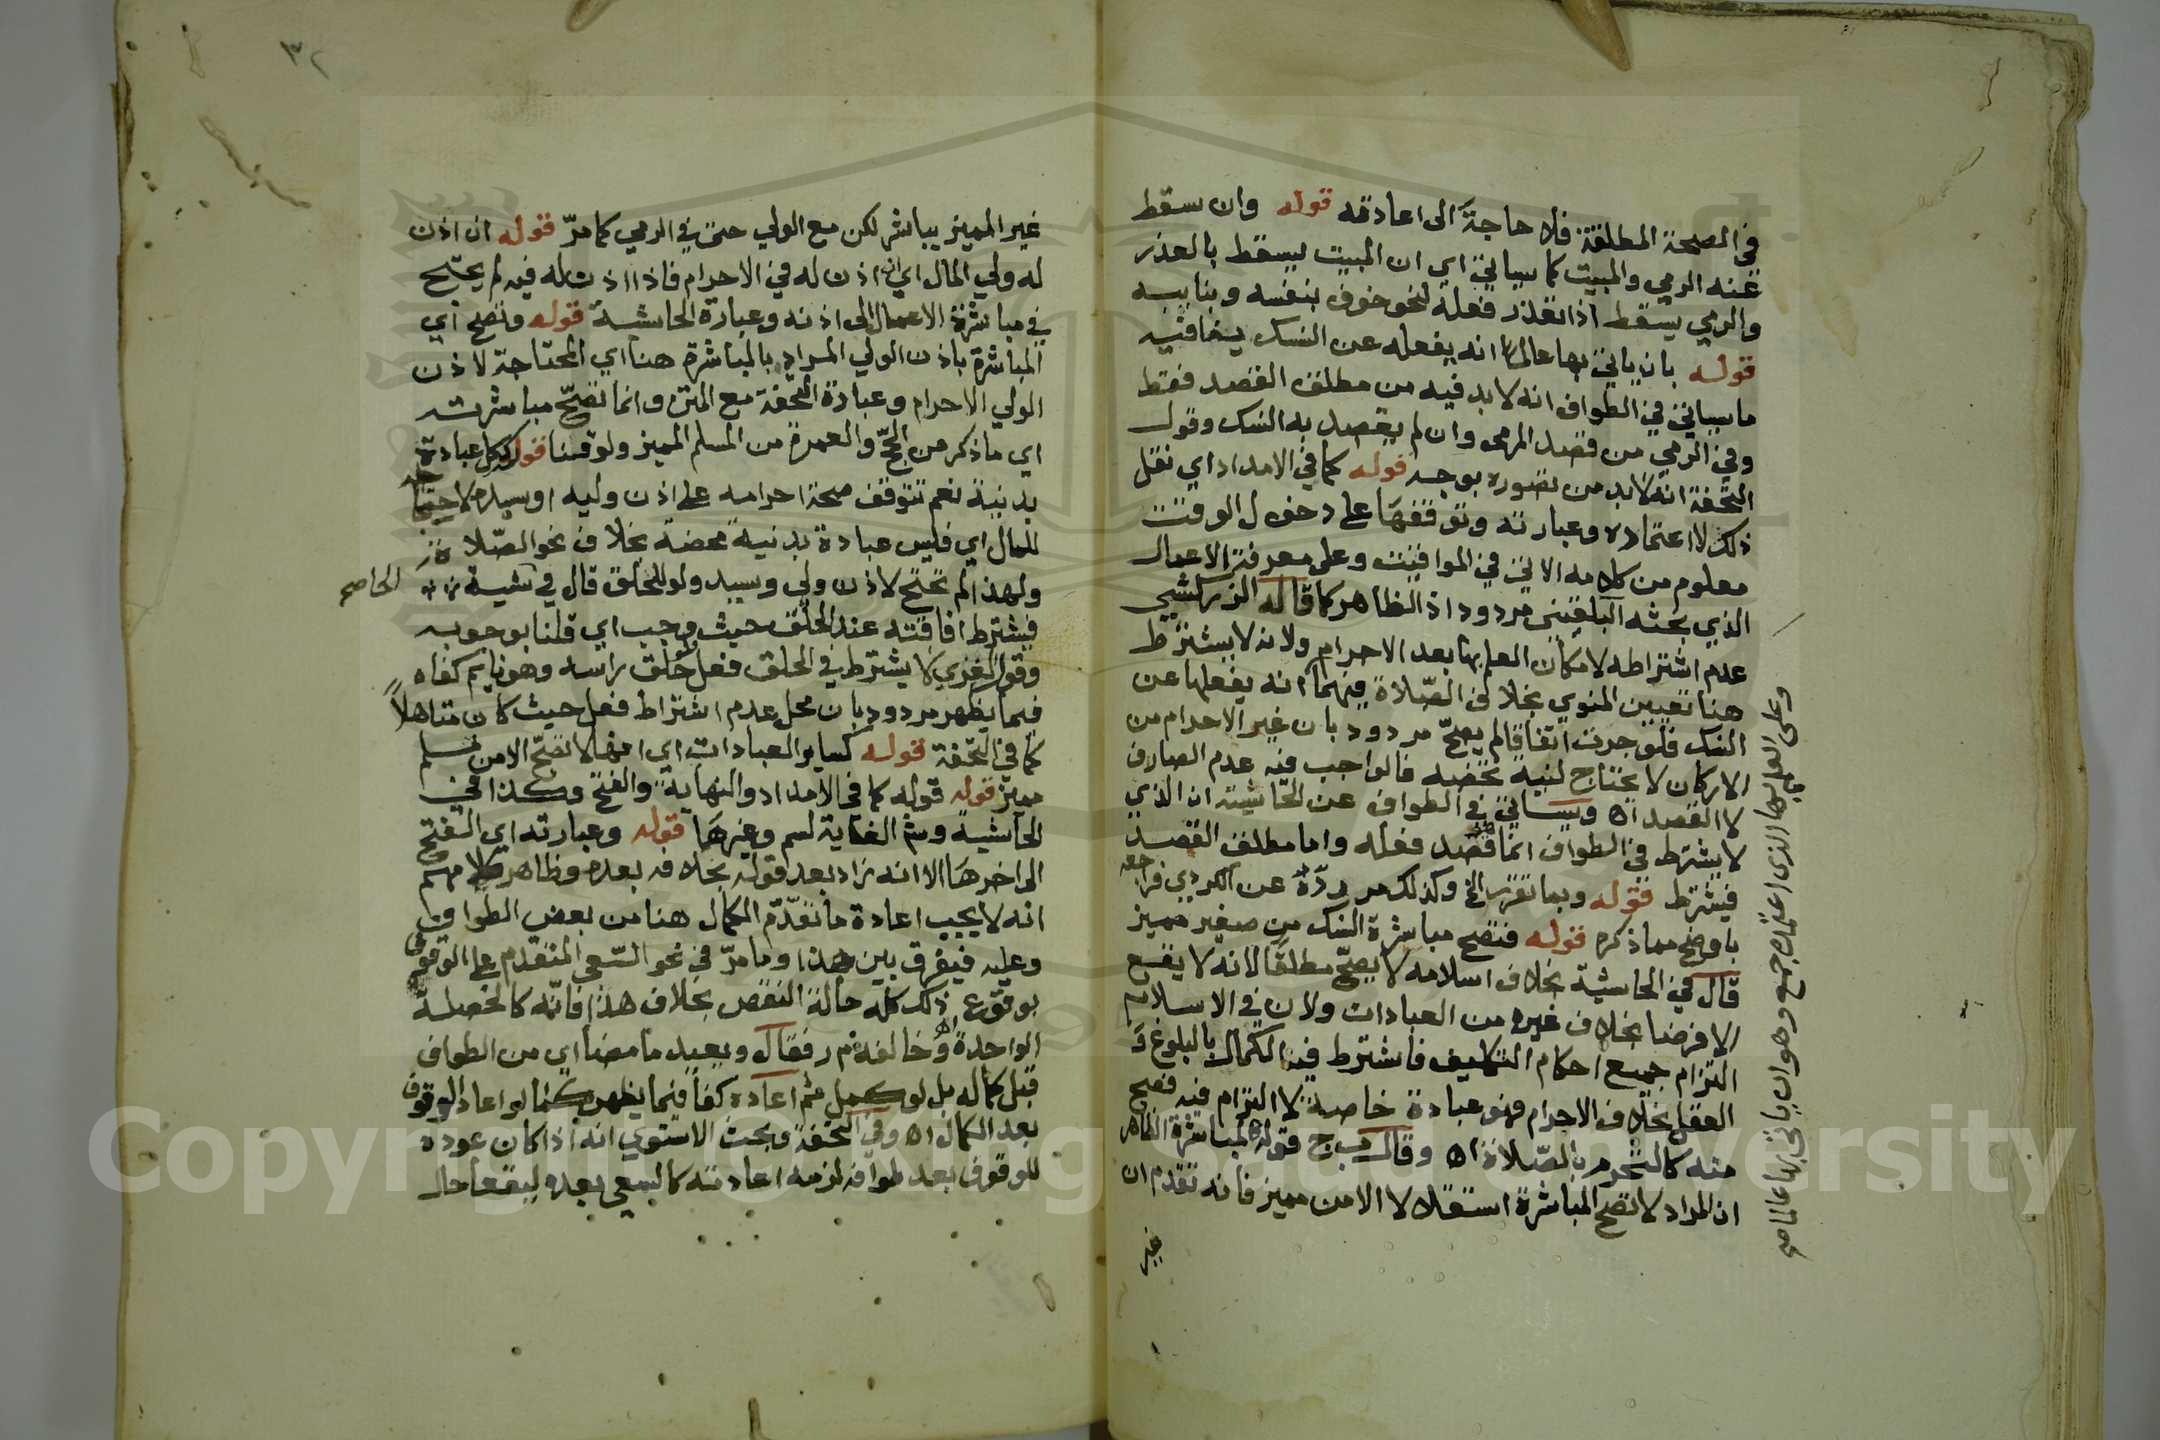 في الصحة المطلقة فلا حاجة الى اعادته قوله وان سقط
عنه الرمي والمبيت كما سياتي اي ان المبيت يسقط بالعذر
والرمي يسقط اذا تعذر فعله لنحو خوف بنفسه وبنايبه
قوله بان ياتي بها عالما انه يفعله عن النسك ينافيه
ما سياتي في الطواف انه لا بد فيه من مطلق القصد فقط
وفي الرمي من قصد المرمى وان لم يقصد به النسك وقول
التحفة انه لا بد من تصوره بوجه قوله كما في الامداد اي نقل
ذلك لا اعتماده وعبارته وتوقفها على دخول الوقت
معلوم من كلامه الاتي في المواقيت وعلى معرفة الاعمال
الذي بحثه البلقيني مردود اذ الظاهر كما قاله الزركشي
عدم اشتراطه لامكان العلم بها بعد الاحرام ولانه لا يشترط
هنا تعيين المنوي بخلاف الصلاة فيهما انه يفعلها عن
النسك فلو جرت اتفاقا لم يصح مردود بان غير الاحرام من
الاركان لا يحتاج لنية تخصه فالواجب فيه عدم الصارف
لا القصد اه وسياتي في الطواف عن الحاشية ان الذي
لا يشترط في الطواف انما قصد فعله واما مطلق القصد
فيشترط قوله وبما تقرر الخ وكذلك مر رده عن الكردي فراجعه
باوضح مما ذكره قوله فتصح مباشرة النسك من صغير مميز
قال في الحاشية بخلاف اسلامه لا يصح مطلقا لانه لا يقع
الا فرضا بخلاف غيره من العبادات ولان في الاسلام
التزام جميع احكام التكليف فاشترط فيه الكمال بالبلوغ و
العقل بخلاف الاحرام فهو عبادة خاصة لا التزام فيه فصح
منه كالتحرم بالصلاة اه وقال ب ج قوله المباشرة الظاهر
ان المراد لا تصح المباشرة استقلالا الا من مميز فانه تقدم ان
غير
وعلى القول بها الذي اعتمده جمع وهو ان ياتي بها عالما صح
٣٢
غير المميز يباشر لكن مع الولي حتى في الرمي كما مر قوله ان اذن
له ولي المال اي ان اذن له في الاحرام فاذا اذن له فيه لم يحتج
في مباشرة الاعمال الى اذنه وعبارة الحاشية قوله وتصح اي
المباشرة باذن الولي المراد بالمباشرة هنا اي المحتاجة لاذن
الولي الاحرام وعبارة التحفة مع المتن وانما تصح مباشرته
اي ما ذكر من الحج والعمرة من المسلم المميز ولو قنا قوله ككل عبادة
بدنية نعم تتوقف صحة احرامه على اذن وليه او سيده لاحتياجه
للمال اي فليس عبادة بدنية محضة بخلاف نحو الصلاة
ولهذا لم تحتج لاذن ولي وسيد ولو للحلق قال في
الحاصح
فيشترط افاقته عند الحلق حيث وجب اي قلنا بوجوبه
وقول الغزي لا يشترط في الحلق فعل فلو حلق راسه وهو نايم كفاه
فيما يظهر مردود بان محل عدم اشتراط فعل حيث كان متاهلا
كما في التحفة قوله كساير العبادات اي انها لا تصح الا من مسلم
مميز قوله قوله كما في الامداد والنهاية والفتح وكذا في
الحاشية وشرح الغاية لسم وغيرها قوله وعبارته اي الفتح
الى اخرها الا انه زاد بعد قوله بخلافه بعده وظاهر كلامهم
انه لا يجب اعادة ما تقدم الكمال هنا من بعض الطواف
وعليه فيفرق بين هذا وما مر في نحو السعي المتقدم على الوقوف
بوقوع ذلك كله حالة النقص بخلاف هذا فانه كالخصلة
الواحدة اه وخالفه م ر فقال ويعيد ما مضا اي من الطواف
قبل كماله بل لو كمل ثم اعاده كفا فيما يظهر كما لو اعاد الوقوف
بعد الكمال اه وفي التحفة وبحث الاسنوي انه اذا كان عوده
للوقوف بعد طوافه لزمه اعادته كالسعي بعده ليقعا حال
Copyright © King Saud University